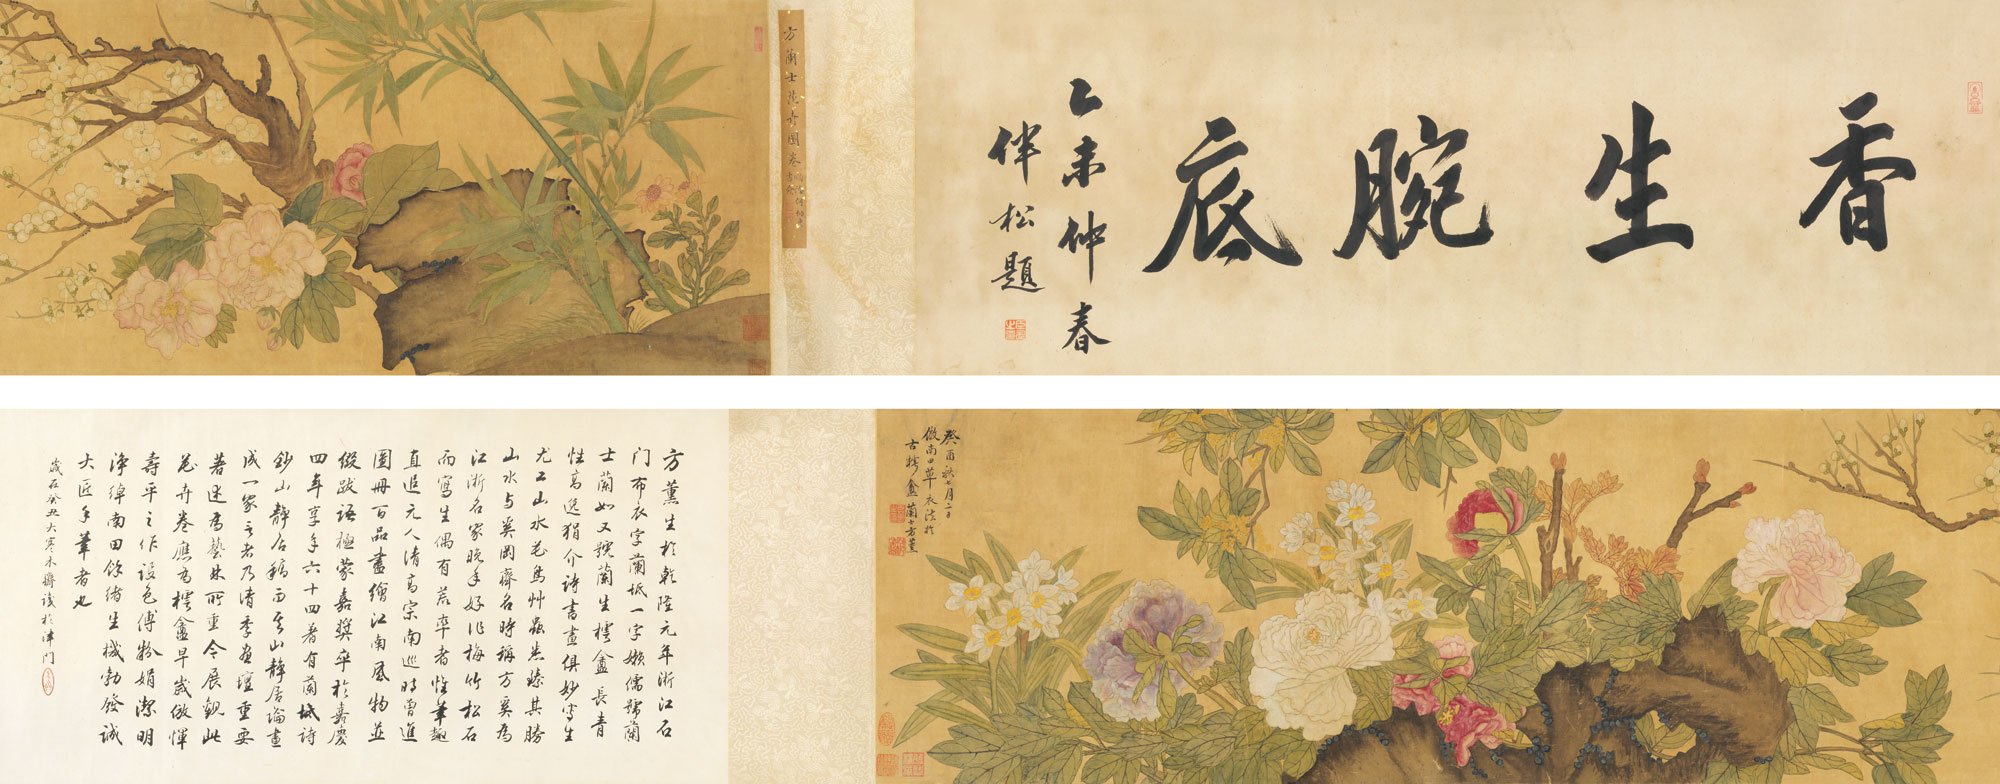 香生腕底
乙未仲春
伴松題
方蘭士花卉圖卷
癸酉秋七月二日
倣南田草衣法於
古樗盦蘭士方薰
方薰生於乾隆元年浙江石
門布衣字蘭坻一字嬾儒號蘭
士蘭如又號蘭生樗盦長青
性高逸狷介詩書畫俱妙寫生
尤工山水花鳥艸蟲悉臻其勝
山水与奚岡齊名時稱方奚為
江浙名家晚年好作梅竹松石
而寫生偶有荒率者惟筆趣
直追元人清高宗南巡時曾進
圖冊百品畫繪江南風物並
緞跋語極蒙嘉獎卒於嘉慶
四年享年六十四著有蘭坻詩
鈔山靜居稿而其山靜居論畫
成一家言者乃清季畫壇重要
著述為藝林所重今展觀此
花卉卷應為樗盦早歲倣惲
壽平之作設色傅粉娟潔明
淨綽南田餘緒生機勃發誠
大匠手筆者也
歲在癸丑大寒禾齋識於津門